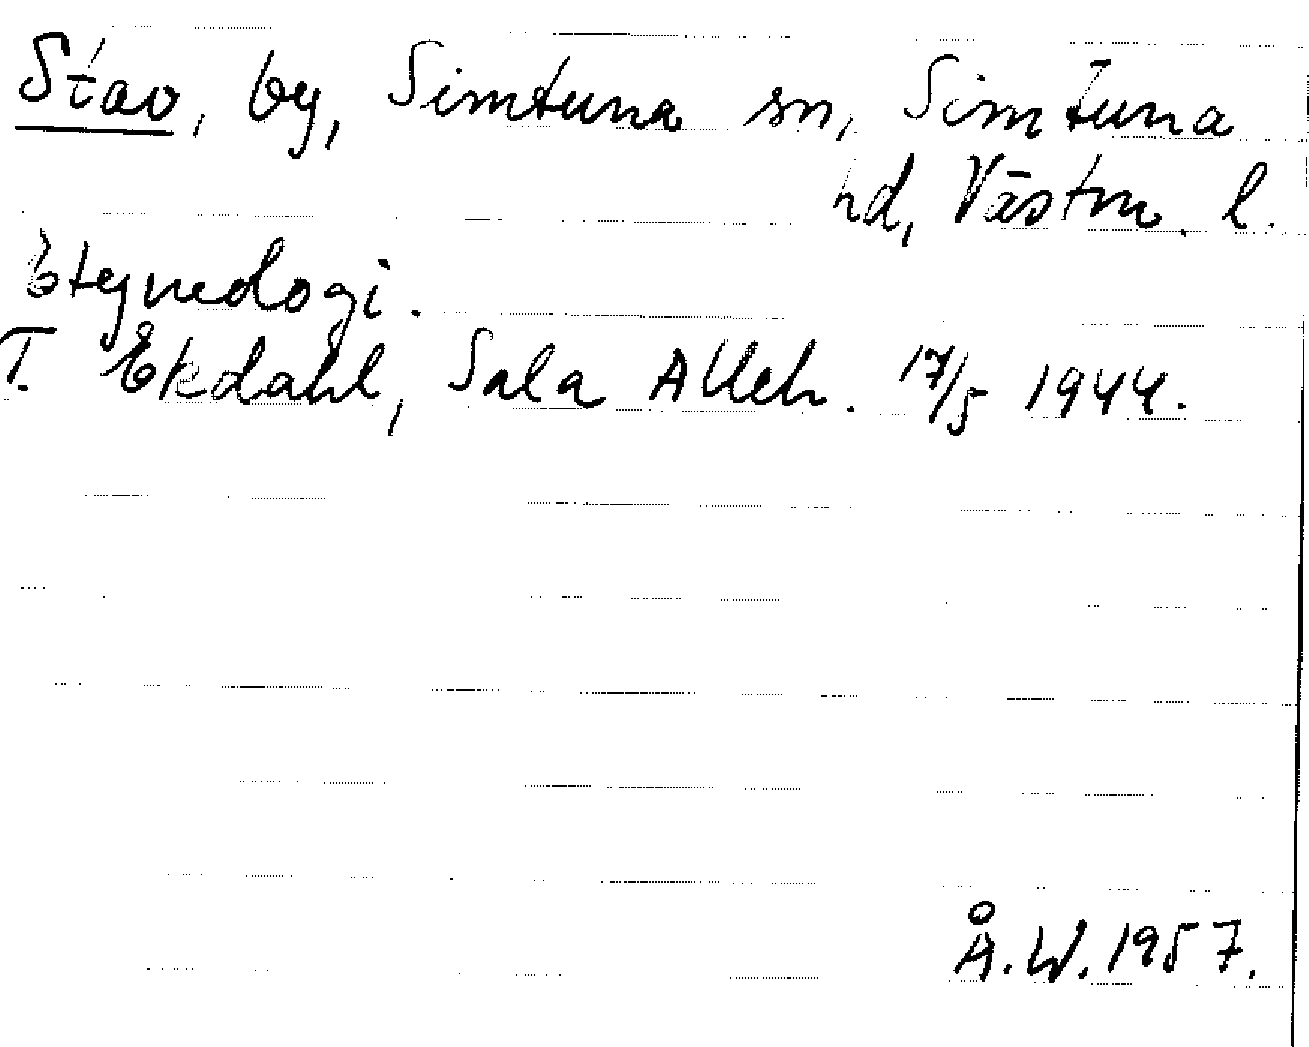 Stav, by, Simtuna sn, Simtuna
hd, Västm. l.
Etymologi.
T. Ekdahl, Sala Alleh. 17/5 1944.
Å.W. 1957.